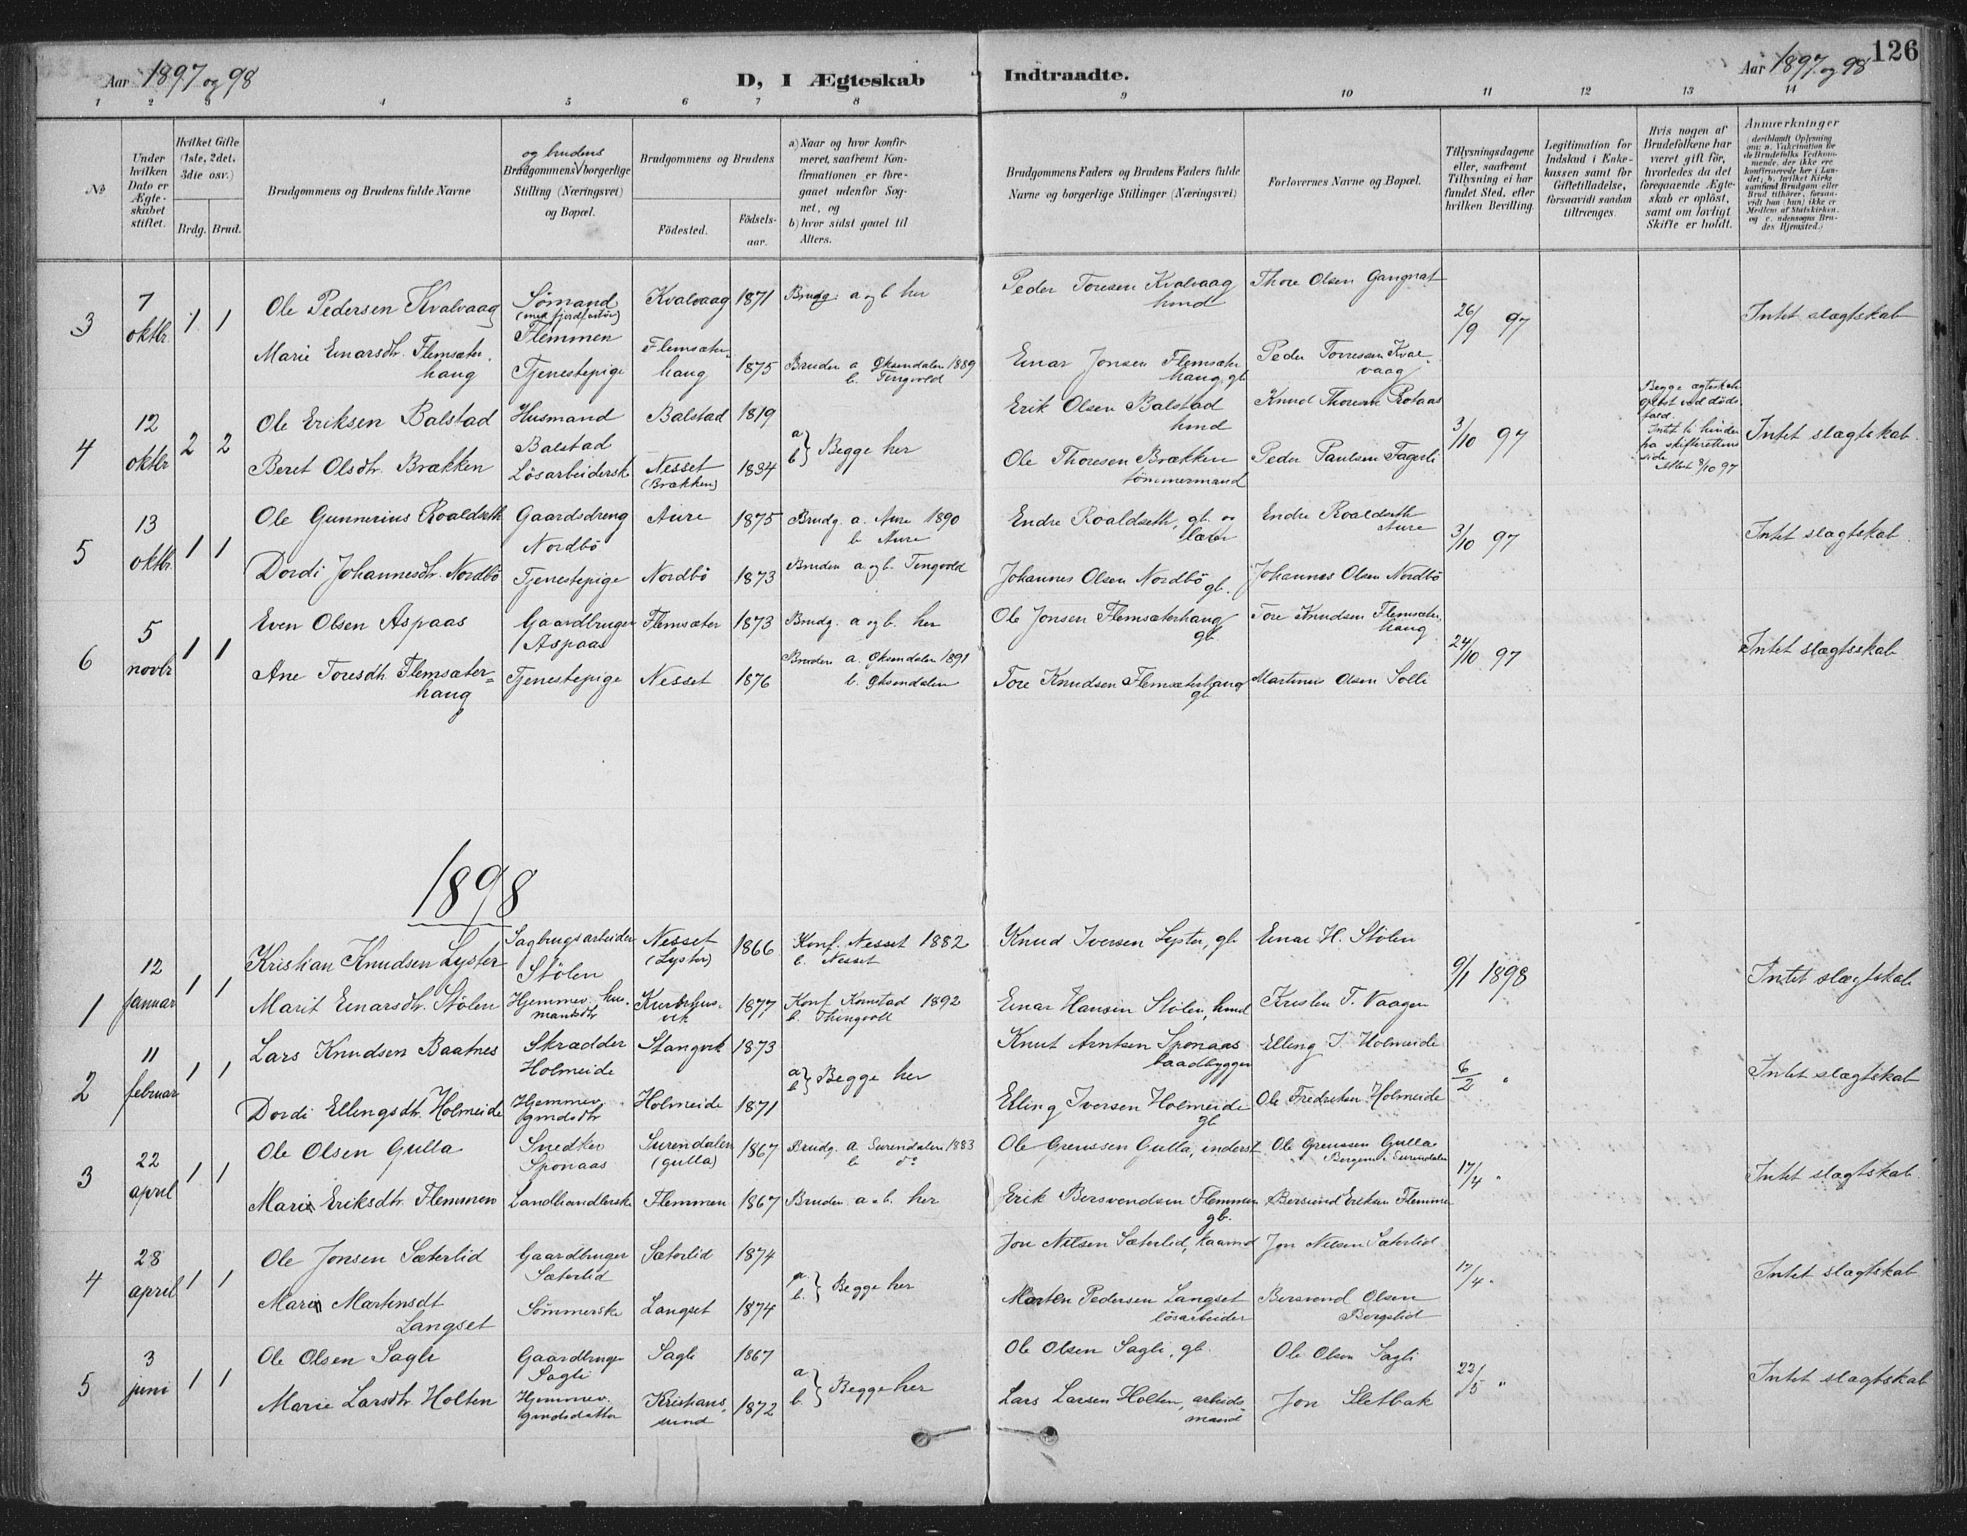 Aar 1897 og 98
D, I Ægteskab
Indtraadte.
Aar 1897 og 98
126
1 2 3 4 5 6 7 8 9 10 11 12 13 14
No
Under hvilken Dato er Ægteskabet stiftet.
Hvilket Gifte (1ste, 2det, 3die osv.)
Brdg. Brud.
Brudgommens og Brudens fulde Navne
og brudens
Brudgommens borgerlige Stilling (Næringsvei) og Bopæl.
Brudgommens og Brudens
Fødested.
Fødselsaar.
a) Naar og hvor konfirmeret, saafremt Konfirmationen er foregaaet udenfor Sognet, og
b) hvor sidst gaaet til Alters.
Brudgommens Faders og Brudens Faders fulde Navne og borgerlige Stillinger (Næringsvei)
Forlovernes Navne og Bopæl.
Tillysningsdagene eller, saafremt Tillysning ei har fundet Sted, efter hvilken Bevilling.
Legitimation for Indskud i Enkekassen samt for Giftetilladelse, forsaavidt saadan tiltrænges.
Hvis nogen af Brudefolkene har været gift før, hvorledes da det foregaaende Ægteskab er opløst, samt om lovligt Skifte er holdt.
Anmærkninger (deriblandt Oplysning om: a. Vakcination for de Brudefolks Vedkommende, der ikke ere konfirmerede her i Landet; b. hvilket Kirkesamfund Brudgom eller Brud tilhører, forsaavidt han (hun) ikke er Medlem af Statskirken, og c. udensogns Brudes Hjemsted.)
3 7 oktbr. 1 1 Ole Pedersen Kvalvaag Sømand Flemmen Kvalvaag 1871 Brudg. a og b her Peder Toresen Kvalvaag hmd Thore Olsen Gangnat 26/9 97 Intet slægtskab
Marie Einarsdtr. Flemsæterhaug Tjenestepige Flemsæterhaug 1875 Bruden a Øksendalen 1889 b. Tingvold Einar Jonsen Flemsæterhaug, gb Peder Torresen Kvalvaag
4 12 oktbr 2 2 Ole Eriksen Balstad Husmand Balstad Balstad 1819 a b } Begge her Erik Olsen Balstad hmd Knud Thoresen Protaas 3/10 97 Begge ægteskab opløst ved dødsfald. Intet til hinder på skifterettens side Intet slægtskab.
Beret Olsdtr. Brækken Løsarbeiderske Nesset (Brækken) 1834 Ole Thoresen Brækken tømmermand Peder Paulsen Fagerli
5 13 oktbr. 1 1 Ole Gunnerius Roaldseth Gaardsdreng Nordbö Aure 1875 Brudg. a. Aure 1890 b. Aure Endre Roaldseth, gb. Endre Roaldseth Aure 3/10 97 Intet slægtskab.
Dordi Johannesdtr. Nordbö Tjenestepige Nordbö 1873 Bruden a og b. Tingvold Johannes Olsen Nordbö gb. Johannes Olsen Nordbö
6 5 novbr 1 1 Even Olsen Aspaas Gaardbruger Aspaas Flemsæter 1873 Brudg. a og b. her Ole Jonsen Flemsæterhaug gb. Tore Knudsen Flemsæterhaug 24/10 97 Intet slægtsskab
Ane Toresdtr Flemsæterhaug Tjenestepige Nesset 1876 Bruden a. Øksendalen 1891 b. Øksendalen Tore Knudsen Flemsæterhaug gb. Martinus Olsen Solli
1898
1 12 Januar 1 1 Kristian Knudsen Lyster Sagbrugsarbeider Stölen Nesset (Lyster) 1866 Konf. Nesset 1882 b. Nesset Knud Iversen Lyster, gb Einar H. Stölen 9/1 1898 Intet slægtskab
Marit Einarsdtr. Stölen Hjemmev. husmandsdtr 1877 Konf. Kornstad 1892 b. Thingvoll Einar Hansen Stölen, hmd Kristen T. Vaagen
2 11 februar 1 1 Lars Knudsen Baatnes Skrædder Holmeide Stangvik 1873 a b } Begge her Knut Arntsen Sponaas baadbygger Elling I. Holmeide 6/2 " Intet slægtskab
Dordi Ellingsdtr. Holmeide Hjemmev. gmdsdtr Holmeide 1871 Elling Iversen Holmeide gb Ole Fredriksen Holmeide
3 22 april 1 1 Ole Olsen Gulla Snedker Sponaas Surendalen (Gulla) 1867 Brudg. a Surendalen 1883 b do Ole Grenssen Gulla, inderst Ole Grenssen Gulla Surendalen 17/4 " Intet slægtskab
Mari Eriksdtr. Flemmen Landhandlerske Flemmen 1867 Bruden a - b. her Erik Bersvendsen Flemmen gb. Bersvend Eriksen Flemme
4 28 april 1 1 Ole Jonsen Sæterlid Gaardbruger Sæterlid Sæterlid 1874 a. b. } Begge her Jon Nilsen Sæterlid, kaarmd Jon Nilsen Sæterlid 17/4 " Intet slægtskab
Mari Martinsdt Langset Sömmerske Langset 1874 Morten Pedersen Langset lösarbeider Bersvend Olsen Bergslid
5 3 juni 1 1 Ole Olsen Sagli Gaardbruger Sagli Sagli 1867 a b. } Begge her Ole Olsen Sagli, gb. Ole Olsen Sagli 22/5 " Intet slægtskab
Marie Larsdtr Holten Hjemmev. gmdsdatter Kristianssund 1872 Lars Larsen Holten, arbeidsmand Jon Sletbak